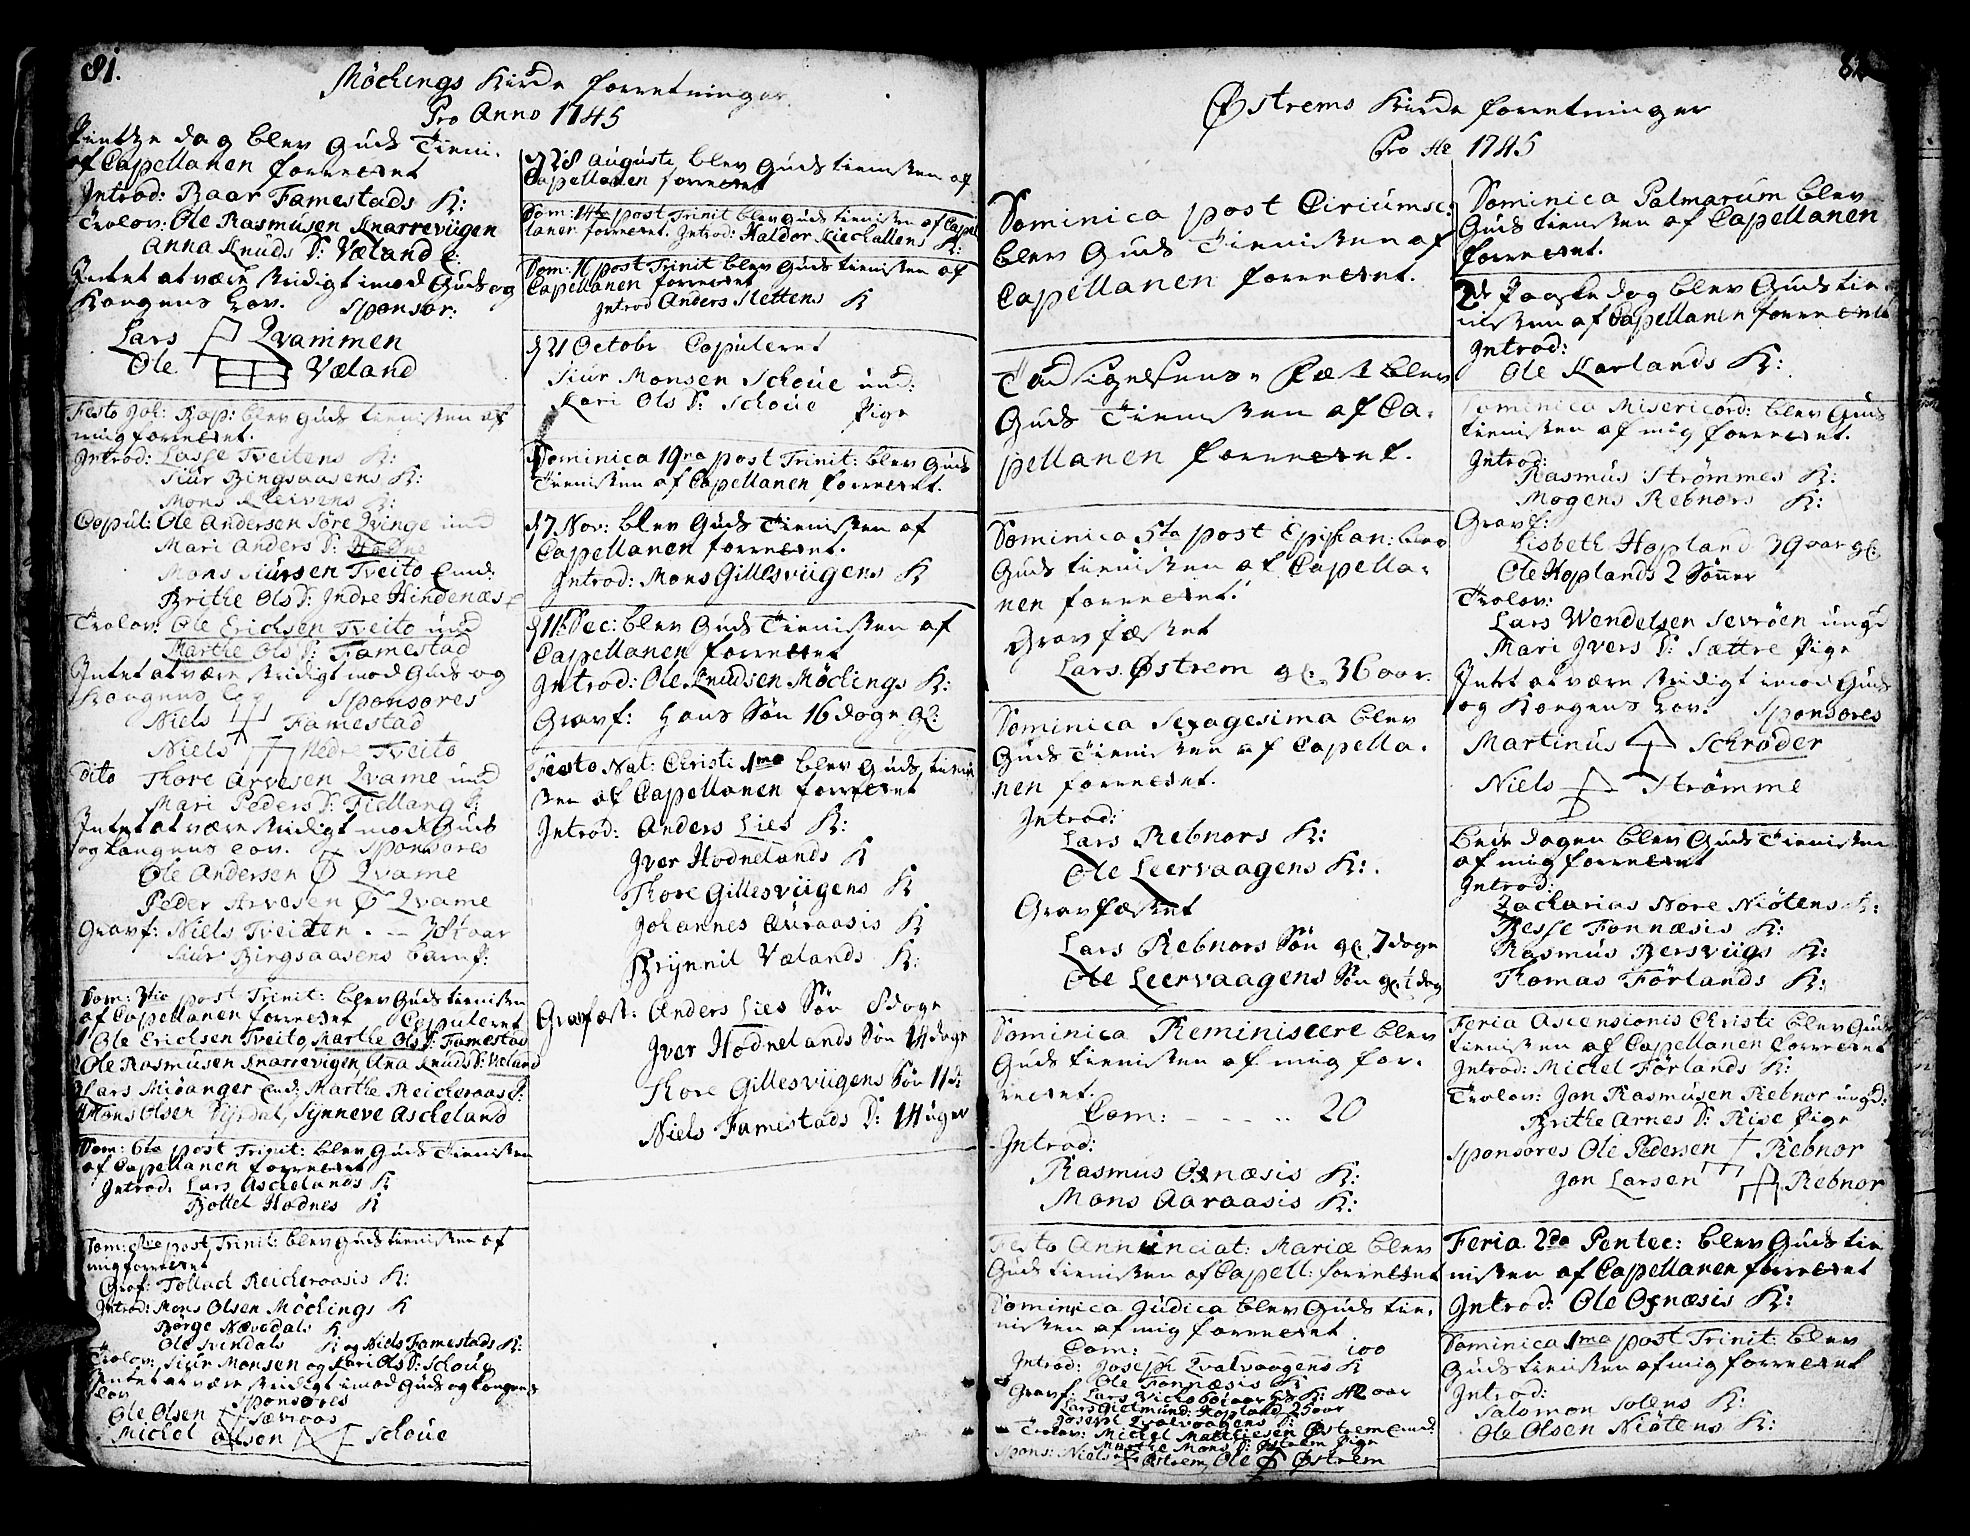 81.
Möchings Kirche forretninger
Pro Anno 1745
Pintze dag blev Guds Tieni.
af Capellanen forrettet
Introd: Baar Famestads K:
Trolov: Ole Rasmusen Knarreviigen
Anna Knuds D: Væland E:
Intet at være stridigt imod Guds og
Kongens Lov. Sponsor:
Lars Qvammen
Ole Væland
Festo Joh: Bap: blev Guds tienisten af
mig forrettet.
Introd: Lasse Tveitens K:
Siur Bingsaasens K:
Mons Kleivens K:
Copul: Ole Andersen Söre Qvinge und
Mari Anders D: Hodne
Mons Siursen Tveito End:
Brithe Ols D: Indre Hindenæs E
Trolov: Ole Erichsen Tveito und
Marthe Ols D: Famestad
Intet at være stridigt mod Guds og
Kongens Lov Sponsores
Niels Famestad
Niels Nedre Tveito
dito Thore Arvesen Qvame und
Mari Peders D: Fiellang P:
Intet at være stridigt mod Guds
og Kongens Lov. Sponsores
Ole Andersen Qvame
Peder Arvesen Qvame
Gravf: Niels Tveiten aar
Siur Bingsaasens barn
Dom: 3tia post Trinit: blev Guds tienisten
af Capellanen forrettet Copuleret
1 Ole Erichsen Tveito, Marthe Ols D: Famestad
Ole Rasmusen Knarrevigen, Ana Knuds D: Væland
Lars Miöanger End: Marthe Reicheraas E:
Mons Olsen, Synneve Ascheland
Dom: 6ta post Trinit: blev Guds Tienisten
af Capellanen forrettet
Introd: Lars Aschelands K
Bottel Hodnes K
Dom: post Trinit: blev Guds tienisten af
mig forrettet
Graf: Tollach Reicheraasis K:
Introd: Mons Olsen Möchings K
Börge Nævedals K
Ole Svendals K: og Niels Famestads K:
Trolov: Siur Monsen og Kari Ols D: Schoue
Intet at være stridigt imod Guds og Kongens
Lov Sponsores
Ole Olsen Sævraas
Michel Olsen Schoue
d 28 Augusti blev Guds tienisten af
Capellanen forrettet
Dom: 14te post Trinit blev Guds tienisten af Capel
lanen forrettet. Introd: Haldor Liechallens K:
Dom: 16 post Trinit blev Guds tienisten af
Capellanen forrettet
Introd Anders Slettens K
d 21 Octobr Copuleret
Siur Monsen Schoue und:
Kari Ols D: Schoue Pige
Dominica 19na post Trinit: blev Guds
Tienisten af Capellanen forrettet.
d 7. Nov: blev Guds Tienisten af
Capellanen forrettet.
Introd: Mons Gillesviigens K
d 11 Dec: blev Guds Tienisten af
Capellanen forrettet
Introd: Ole Knudsen Möchings K:
Gravf: Hans Sön 16 dage gl:
Festo Nat: Christi 1ma blev Guds tieni
sten af Capellanen forrettet
Introd: Anders Lies K:
Iver Hodnelands K
Thore Gillesviigens K
Johannes Auraasis K
Brynnil Vælands K:
Gravfæst: Anders Lies Sön 8 dage
Iver Hodnelands Sön 14 dage
Thore Gillesviigens Sön 11 d:
Niels Famestads D: 14 uger
82
Østrems Kirche forretninger
Pro Ao 1745
Dominica post Circumsc:
blev Guds Tienisten af
Capellanen forrettet.
Tacksigelsens Fæst blev
Guds Tienisten af Ca-
pellanen forrettet.
Dominica 5ta post Epiphan: blev
Guds tienisten af Capella-
nen forrettet.
Gravfæstet
Lars Østrem gl: 36 aar.
Dominica Sexagesima blev
Guds Tienisten af Capella-
nen forrettet.
Introd:
Lars Rebnors K:
Ole Leervaagens K:
Gravfæstet
Lars Rebnors Sön gl: 7 dage
Ole Leervaagens Sön gl 1 dag
Dominica Reminiscere blev
Guds tienisten af mig for-
rettet.
Com: - - - - 20
Introd:
Rasmus Oxnæsis K:
Mons Aaraasis K:
Festo Annunciat: Mariæ blev
Guds tienisten af Capell: forrettet
Dominica Judica blev Guds tie-
nisten af mig forrettet
Com: 100
Introd: Joseph Qvalvaagens K
Ole Fonnæsis K
Gravf: Lars 42 aar
Hopland 25 aar
Joseph Qvalvaagens D:
Trolov: Michel Matthiesen Østrem End:
Marthe Mons D: Østrem Pige
Spons: Niels Østrem, Ole Østrem
Dominica Palmarum blev
Guds tienisten af Capellanen
forrettet.
2de Paaske dag blev Guds tie-
nisten af Capellanen forrettet
Introd:
Ole Karlands K:
Dominica Misericord: blev Guds
tienisten af mig forrettet.
Introd:
Rasmus Strömmes K:
Mogens Rebnors K:
Gravf:
Lisbeth Hopland 39 aar gl
Ole Hoplands 2 Sönner
Trolov:
Lars Wendelsen Sevröen ungd
Mari Ivers D: Sættre Pige
Intet at være stridigt imod Guds
og Kongens Lov. Sponsores
Martinus Schröder
Niels Strömme
Bede dagen blev Guds Tienisten
af mig forrettet
Introd:
Zacharias Nore Niötens K:
Besse Fonnæsis K:
Rasmus Bersviigs K:
Thomas Förlands K:
Feria Ascensionis Christi blev Guds
tienisten af Capellanen forrettet
Introd: Michel Förlands K:
Trolov: Jon Rasmusen Rebnor ungd:
Brithe Arnes D: Rise Pige
Sponsores Ole Pedersen Rebnor
Jon Larsen Rebnor
Feria 2da Pentec: blev Guds tie
nisten af Capellanen forrettet
Introd: Ole Oxnæsis K:
Dominica 1ma post Trinit: blev
Guds tienisten af mig forrettet
Introd:
Salomon Solens K:
Ole Olsen Niötens K: